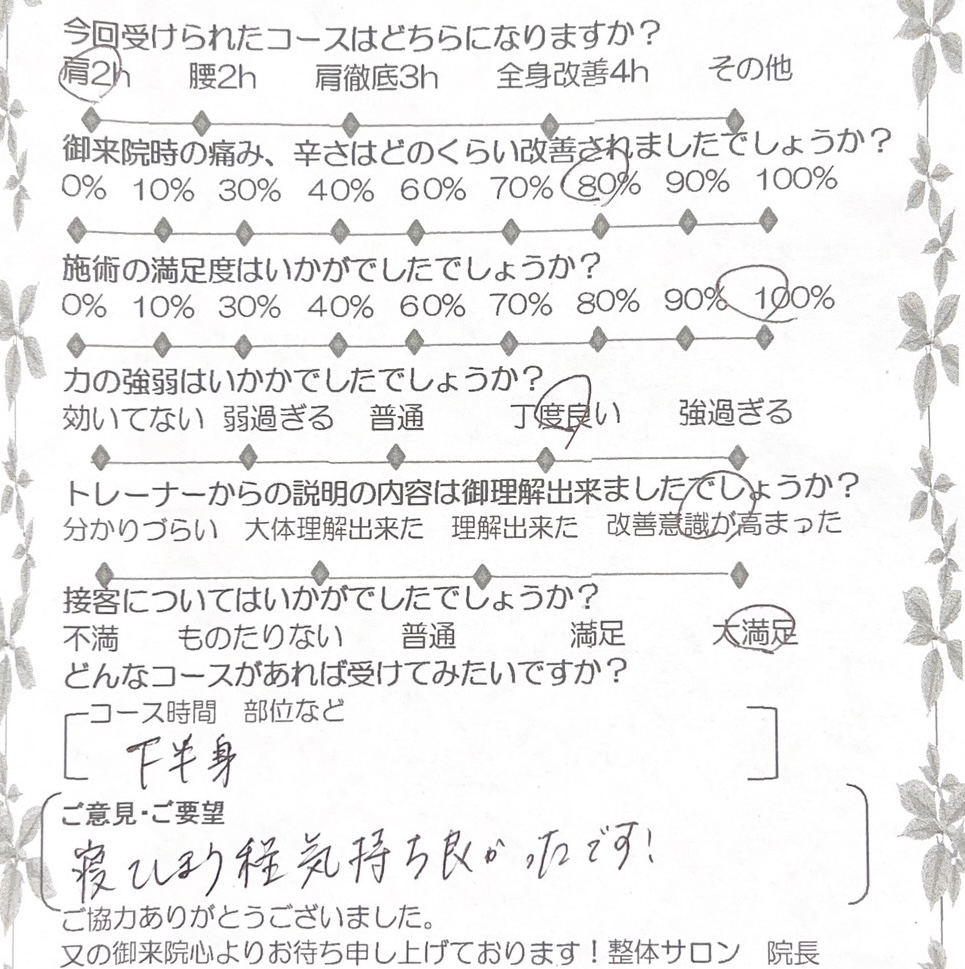 今回受けられたコースはどちらになりますか？
肩2h 腰2h 肩徹底3h 全身改善4h その他
御来院時の痛み、辛さはどのくらい改善されましたでしょうか？
0% 10% 30% 40% 60% 70% 80% 90% 100%
施術の満足度はいかがでしたでしょうか？
0% 10% 30% 40% 60% 70% 80% 90% 100%
力の強弱はいかかでしたでしょうか？
効いてない 弱過ぎる 普通 丁度良い 強過ぎる
トレーナーからの説明の内容は御理解出来ましたでしょうか？
分かりづらい 大体理解出来た 理解出来た 改善意識が高まった
接客についてはいかがでしたでしょうか？
不満 ものたりない 普通 満足 大満足
どんなコースがあれば受けてみたいですか？
コース時間 部位など
下半身
ご意見・ご要望
寝ひまり程気持ち良かったです！
ご協力ありがとうございました。
又の御来院心よりお待ち申し上げております！整体サロン 院長